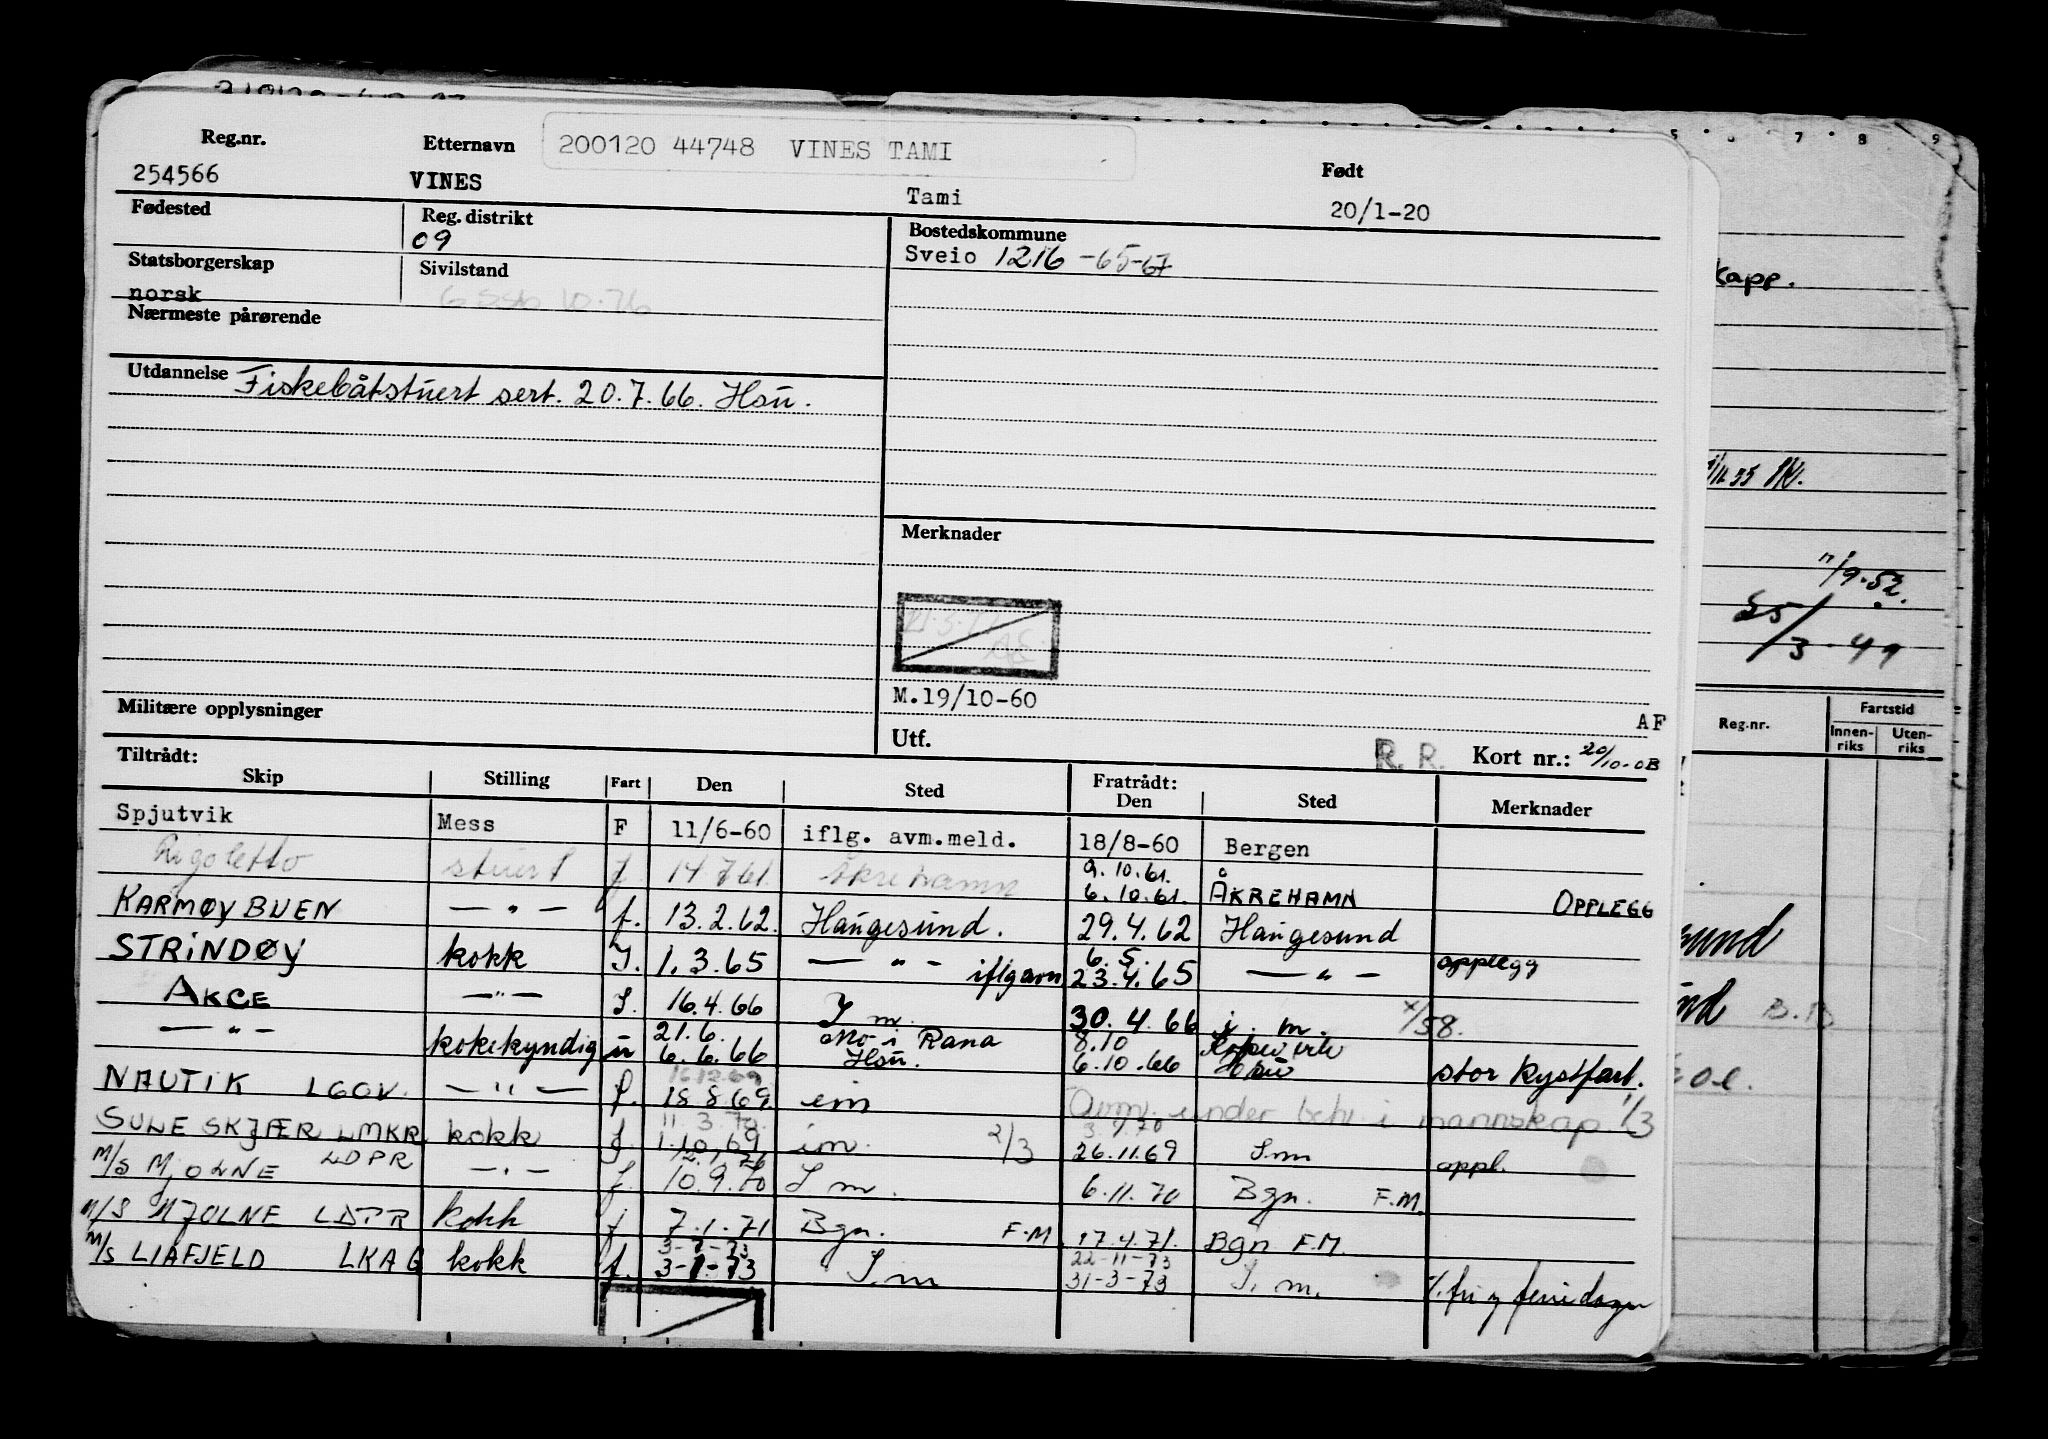 Reg.nr. Etternavn 200120 44748 VINES TAMI Født
254566 VINES Tami 20/1-20
Fødested Reg. distrikt Bostedskommune
09 Sveio 1216 -65-67
Statsborgerskap Sivilstand
norsk
Nærmeste pårørende
Utdannelse Fiskebåtstuert sert. 20.7.66. Hsu.
Merknader
M.19/10-60
Militære opplysninger Utf. AF
R. R. Kort nr.: 20/10-0B
Tiltrådt: Fratrådt:
Skip Stilling Fart Den Sted Den Sted Merknader
Spjutvik Mess F 11/6-60 iflg. avm.meld. 18/8-60 Bergen
Rigoletto stuert f. 14 7 61. Åkrehamn 9.10.61. 6.10.61. ÅKREHAMN OPPLEGG
KARMØYBUEN — " — f. 13.2.62. Haugesund. 29.4.62 Haugesund
STRINDØY kokk I. 1.3.65 — " — iflg avm 6.5. 23.4.65 — " — opplegg
AKCE — " — I. 16.4.66 I m. 30.4.66 i. m. x/58.
— " — kokekyndig u 21.6. 6.6.66 Mo i Rana Hsu. 8.10 6.10.66 Hsu stor kystfart.
NAUTIK LGOV. — " — f. 18 8 69. im Avm. under beh. i mannskap 1/3
SULESKJÆR LMKR kokk f. 11.3.70. 1.10.69 im. 2/3 26.11.69 I.m appl.
M/S MJOLNE LDPR — " — f. 10.9.70 I m. 6.11.70 Bgn. F.M.
M/S MJOLNE LDPR kokk f 7.1.71 Bgn. F.M. 17.4.71. Bgn F.M.
M/S LIAFJELD LKAG kokk f. 3-1-73 I.m 22-11-73 31-3-73 I. m. /. fri og feriedager
kapp.
11/9.52.
25/3-49
Reg.nr. Fartstid
Innenriks Utenriks